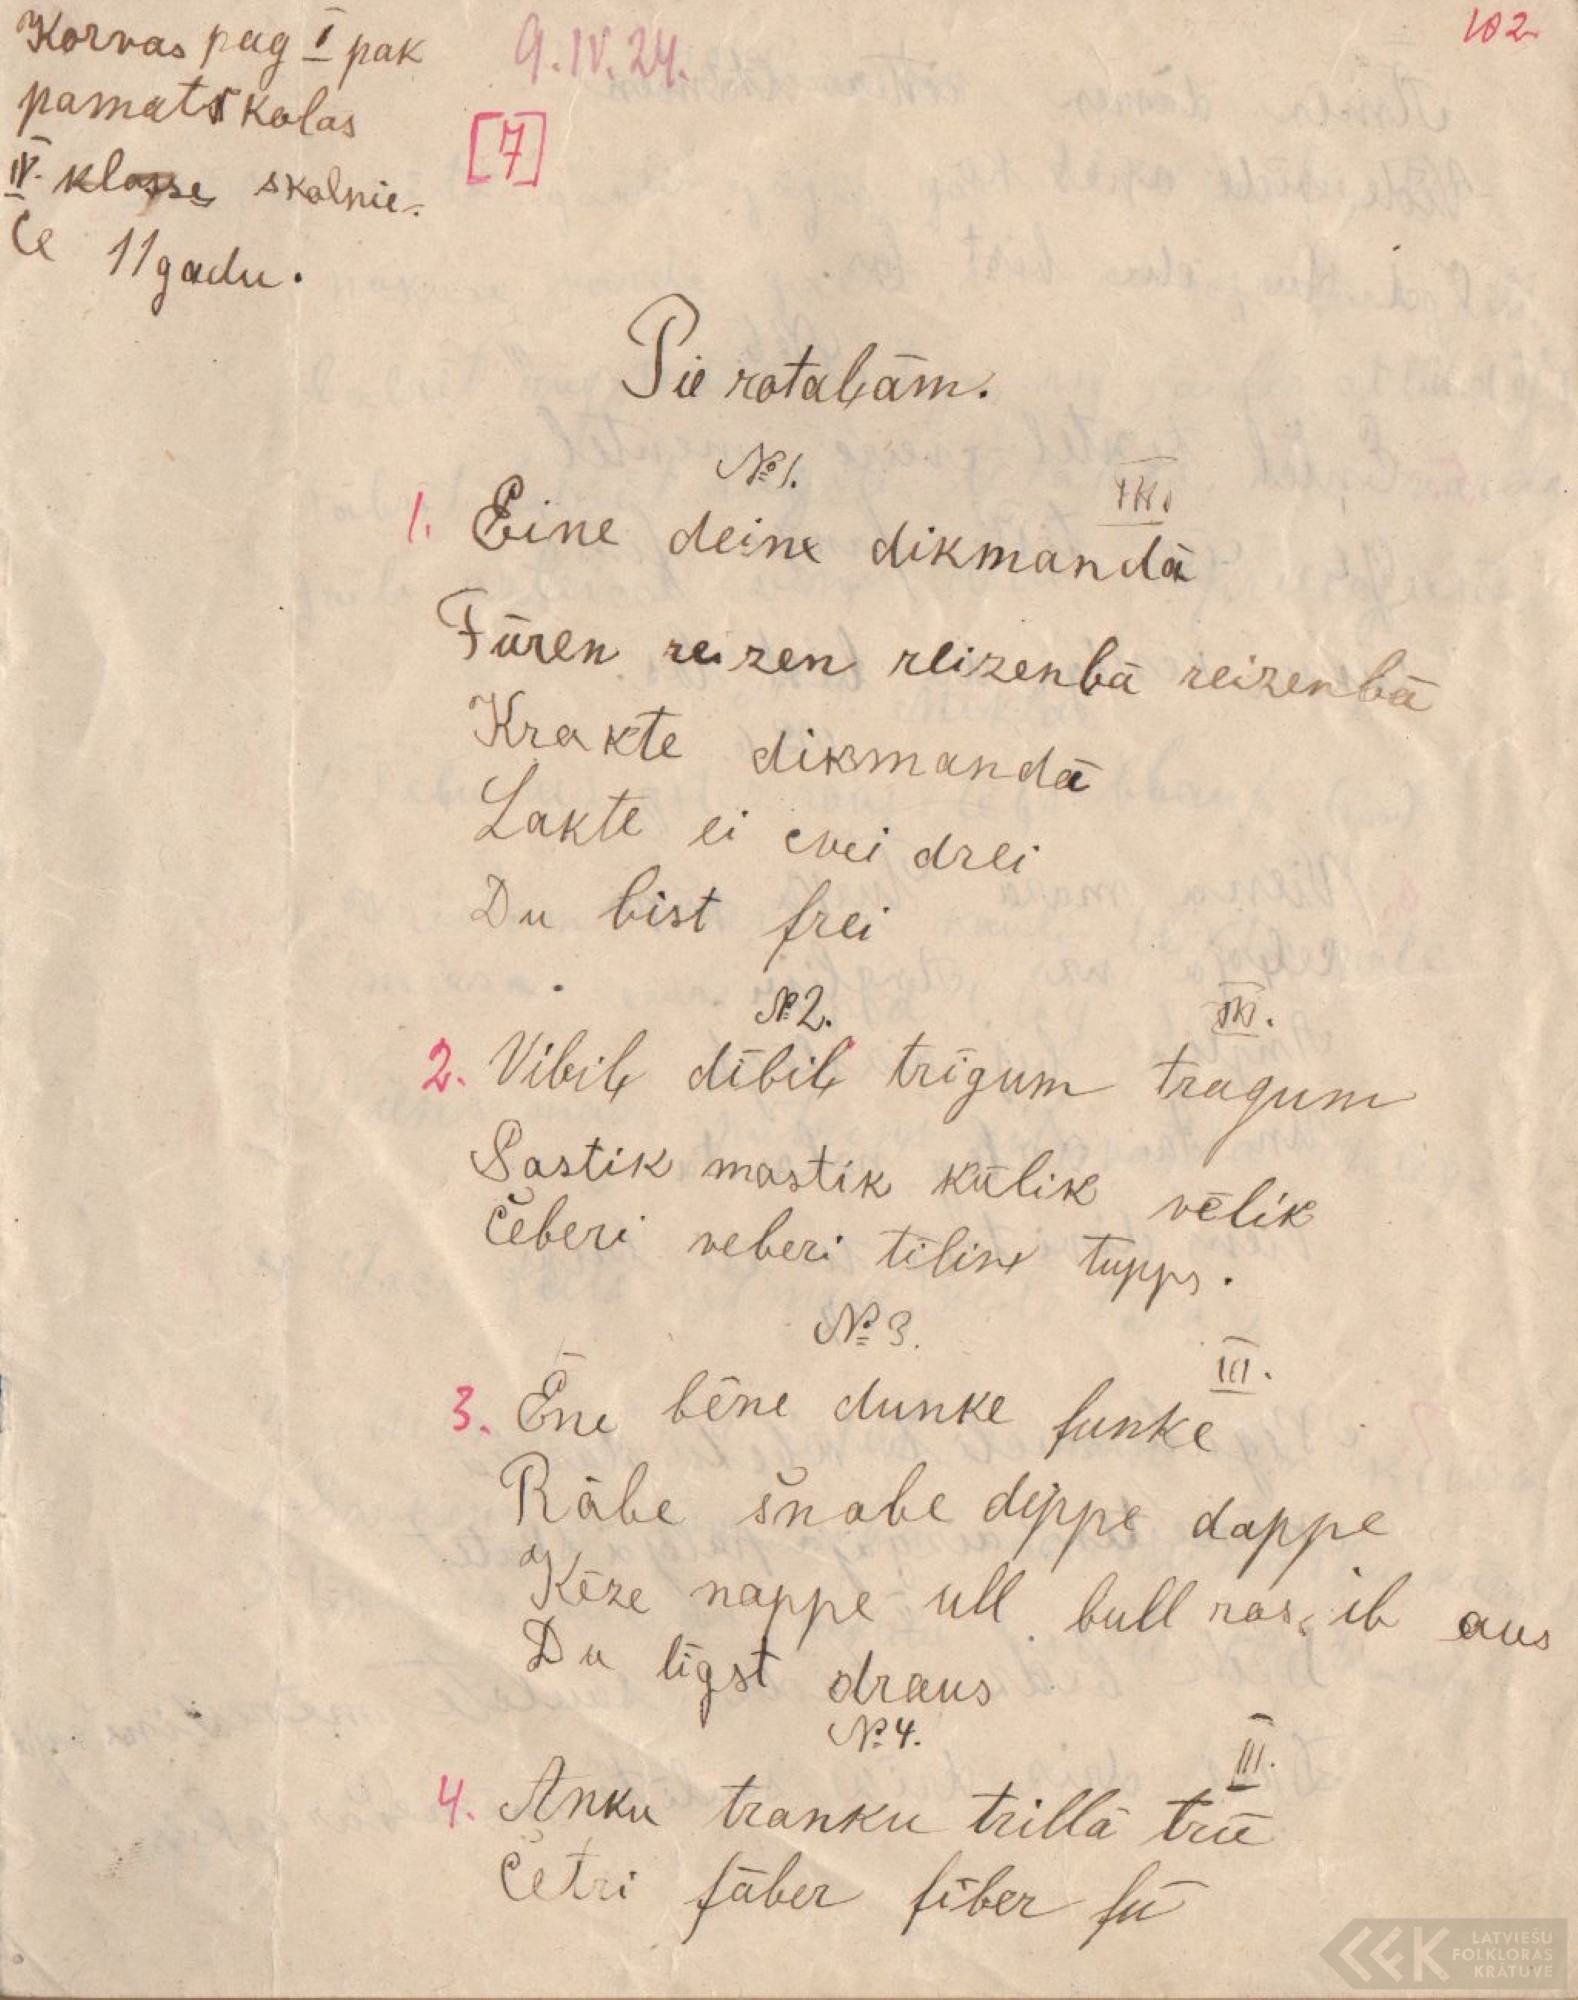 Korvas pag I pak
pamatskolas
IV. klasse skolnie-
ce 11 gadu.
9.IV.24.
102
[7]
Pie rotaļām.
№ 1.
III.
1. Eine deine dikmandā
Fūren reizen reizenbā reizenbā
Krakte dikmandā
Lakte ei cvei drei
Du bist frei
№ 2.
III.
2. Vibiļ dibiļ trīgum tragum
Sastik mastik kūlik vēlik
Čeberi veberi tiliņ tupps.
№ 3.
III.
3. Ēne bēne dunke funke
Rābe šnabe dippe dappe
Kēze nappe ull bull ros, ib aus
Du līgst draus
№ 4.
III.
4. Anku tranku trillā trū
Četri fāber fiber fū
LATVIEŠU
FOLKLORAS
KRĀTUVE